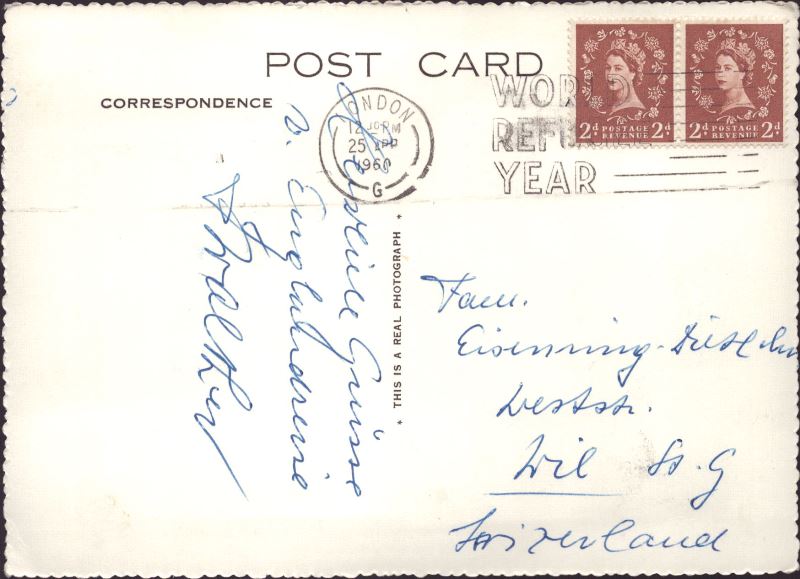 POST CARD
CORRESPONDENCE
LONDON
12 PM
25 APR
1960
G
WORLD
REFUGEE
YEAR
2d POSTAGE REVENUE 2d
2d POSTAGE REVENUE 2d
* THIS IS A REAL PHOTOGRAPH *
Herzliche Grüsse
v. Englandreise
Walther
Fam.
Eisenring-
Weststr.
Wil St. G
Swizerland